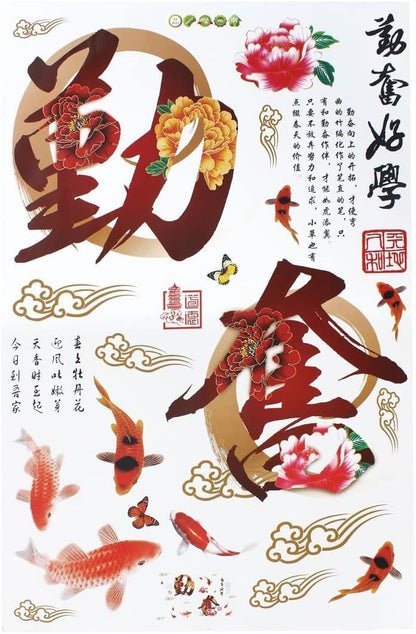 勤
奮
勤奮好學
勤奋向上的开拓，才使弯
曲的竹编化作了笔直的笔，只
有和勤奋作伴，才能如虎添翼。
只要不放弃努力和追求，小草也有
点缀春天的价值。
天地
人和
喜上牡丹花
迎风吐嫩芽
天香时直起
今日到吾家